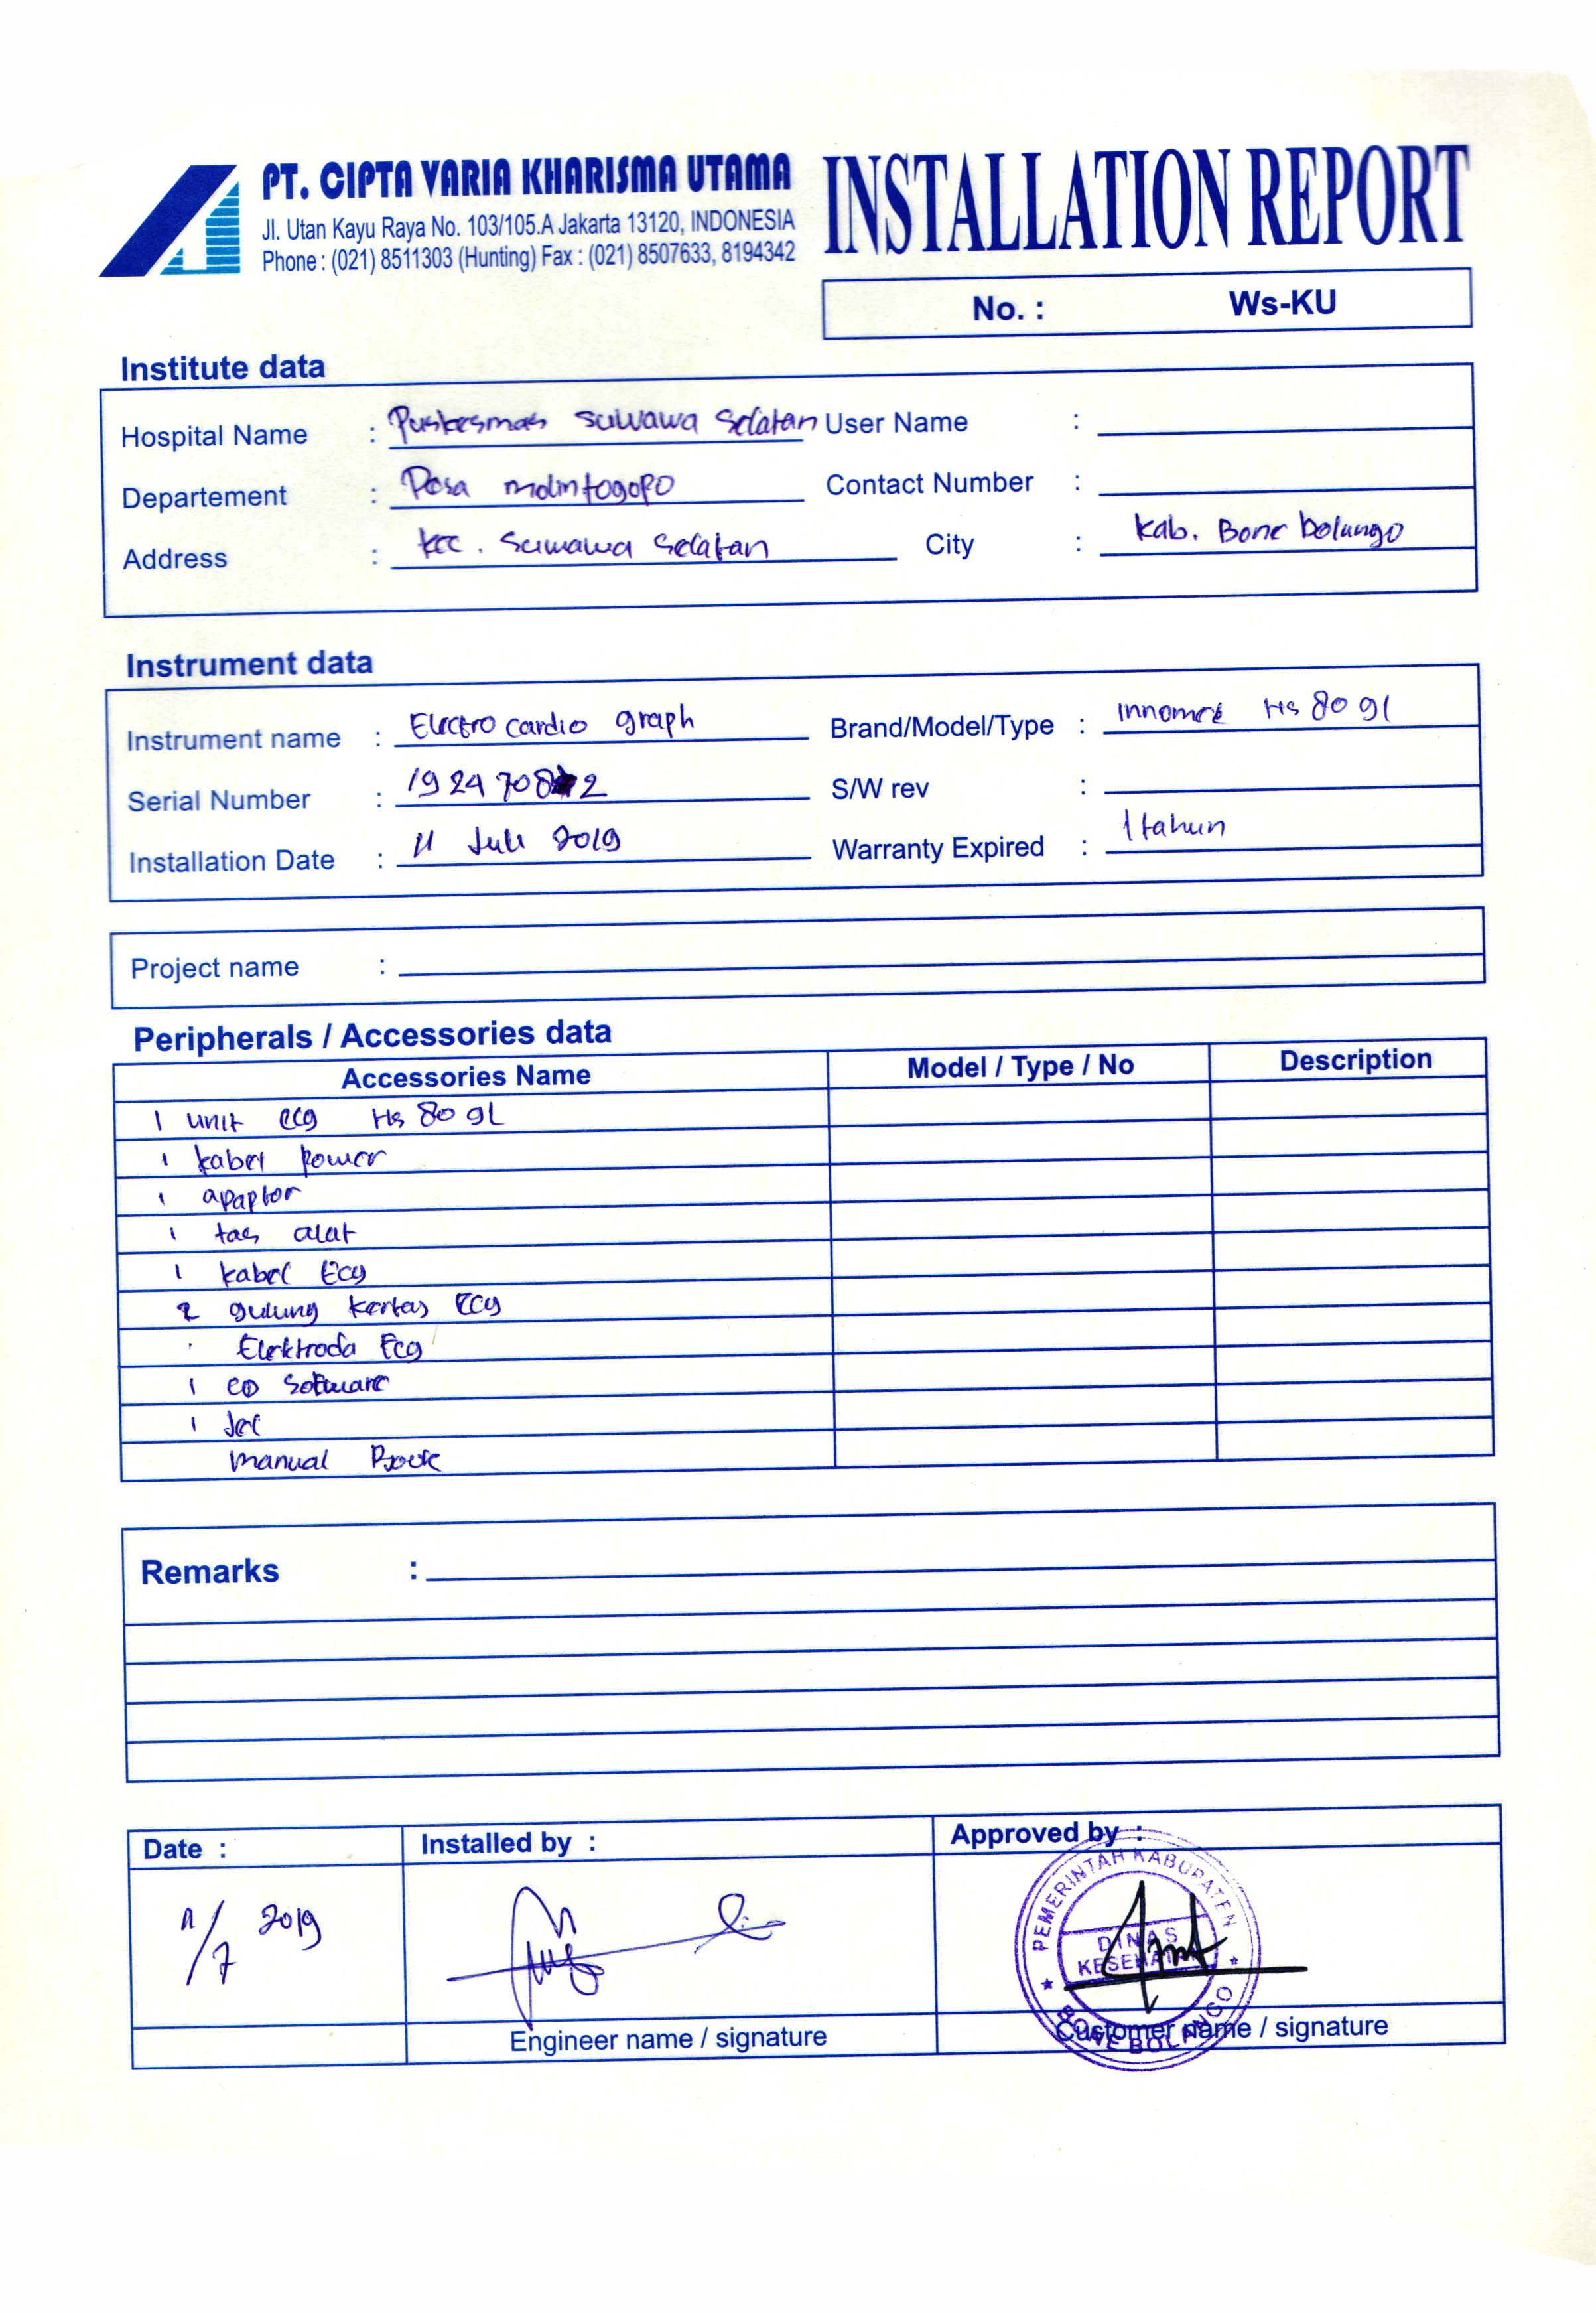 PT. CIPTA VARIA KHARISMA UTAMA
Jl. Utan Kayu Raya No. 103/105.A Jakarta 13120, INDONESIA
Phone : (021) 8511303 (Hunting) Fax : (021) 8507633, 8194342
INSTALLATION REPORT
No. : Ws-KU
Institute data
Hospital Name : Puskesmas suwawa selatan User Name :
Departement : Desa molintogopo Contact Number :
Address : kec. Suwawa selatan City : kab. Bone bolango
Instrument data
Instrument name : Electro cardio graph Brand/Model/Type : innomed Hs 80 gl
Serial Number : S/W rev :
Installation Date : 11 Juli 2019 Warranty Expired : 1 tahun
Project name :
Peripherals / Accessories data
Accessories Name Model / Type / No Description
1 unit ecg Hs 80 gL
1 kabel power
1 adaptor
1 tas alat
1 kabel Ecg
2 gulung kertas ECG
Elektroda Ecg
1 CD Software
1 Jel
manual Book
Remarks :
Date : Installed by : Approved by :
11/7 2019
PEMERINTAH KABUPATEN
DINAS
KESEHATAN
BONE BOLANGO
Engineer name / signature Customer name / signature